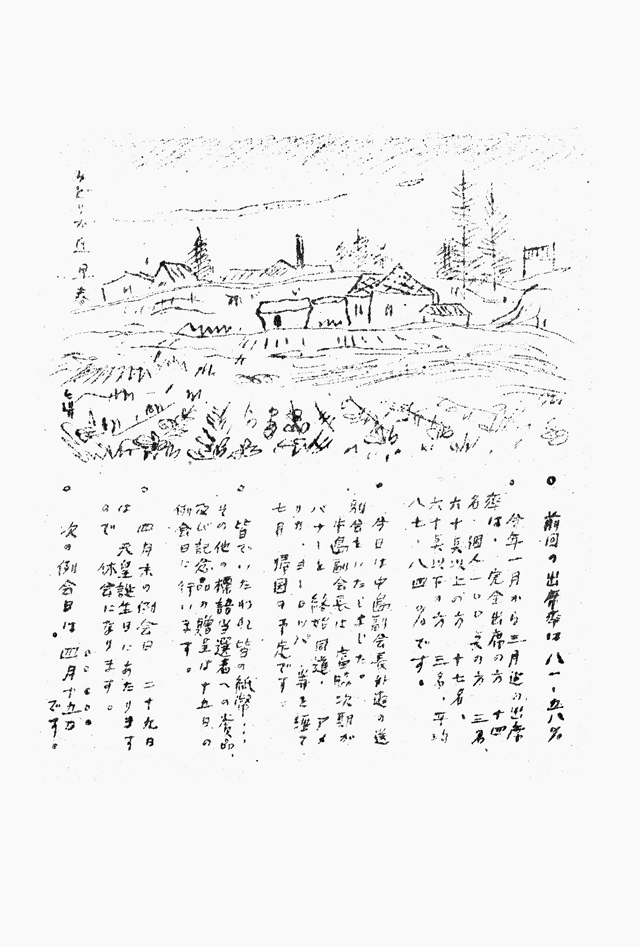 みどりが丘 早春
○ 前回の出席率は八一・五八%
○ 今年一月から三月迄の出席
率は、完全出席の方 十四
名、個人一〇〇点の方 三名、
六十点以上の方 十七名、
六十点以下の方 三名、平均
八七・八四%です。
○ 今日は中島副会長外遊の送
別会をいたしました。
中島副会長は 次期ガ
バナーと 終始同道、アメ
リカ、ヨーロッパ 等を経て
七月 帰国の予定です。
○ 皆でいたわれ皆の紙幣…
その他の標語当選者への賞品、
及び記念品の贈呈は十五日の
例会日に行います。
○ 四月末の例会日 二十九日
は 天皇誕生日にあたります
ので 休会になります。
○ 次の例会日は 四月十五日
です。